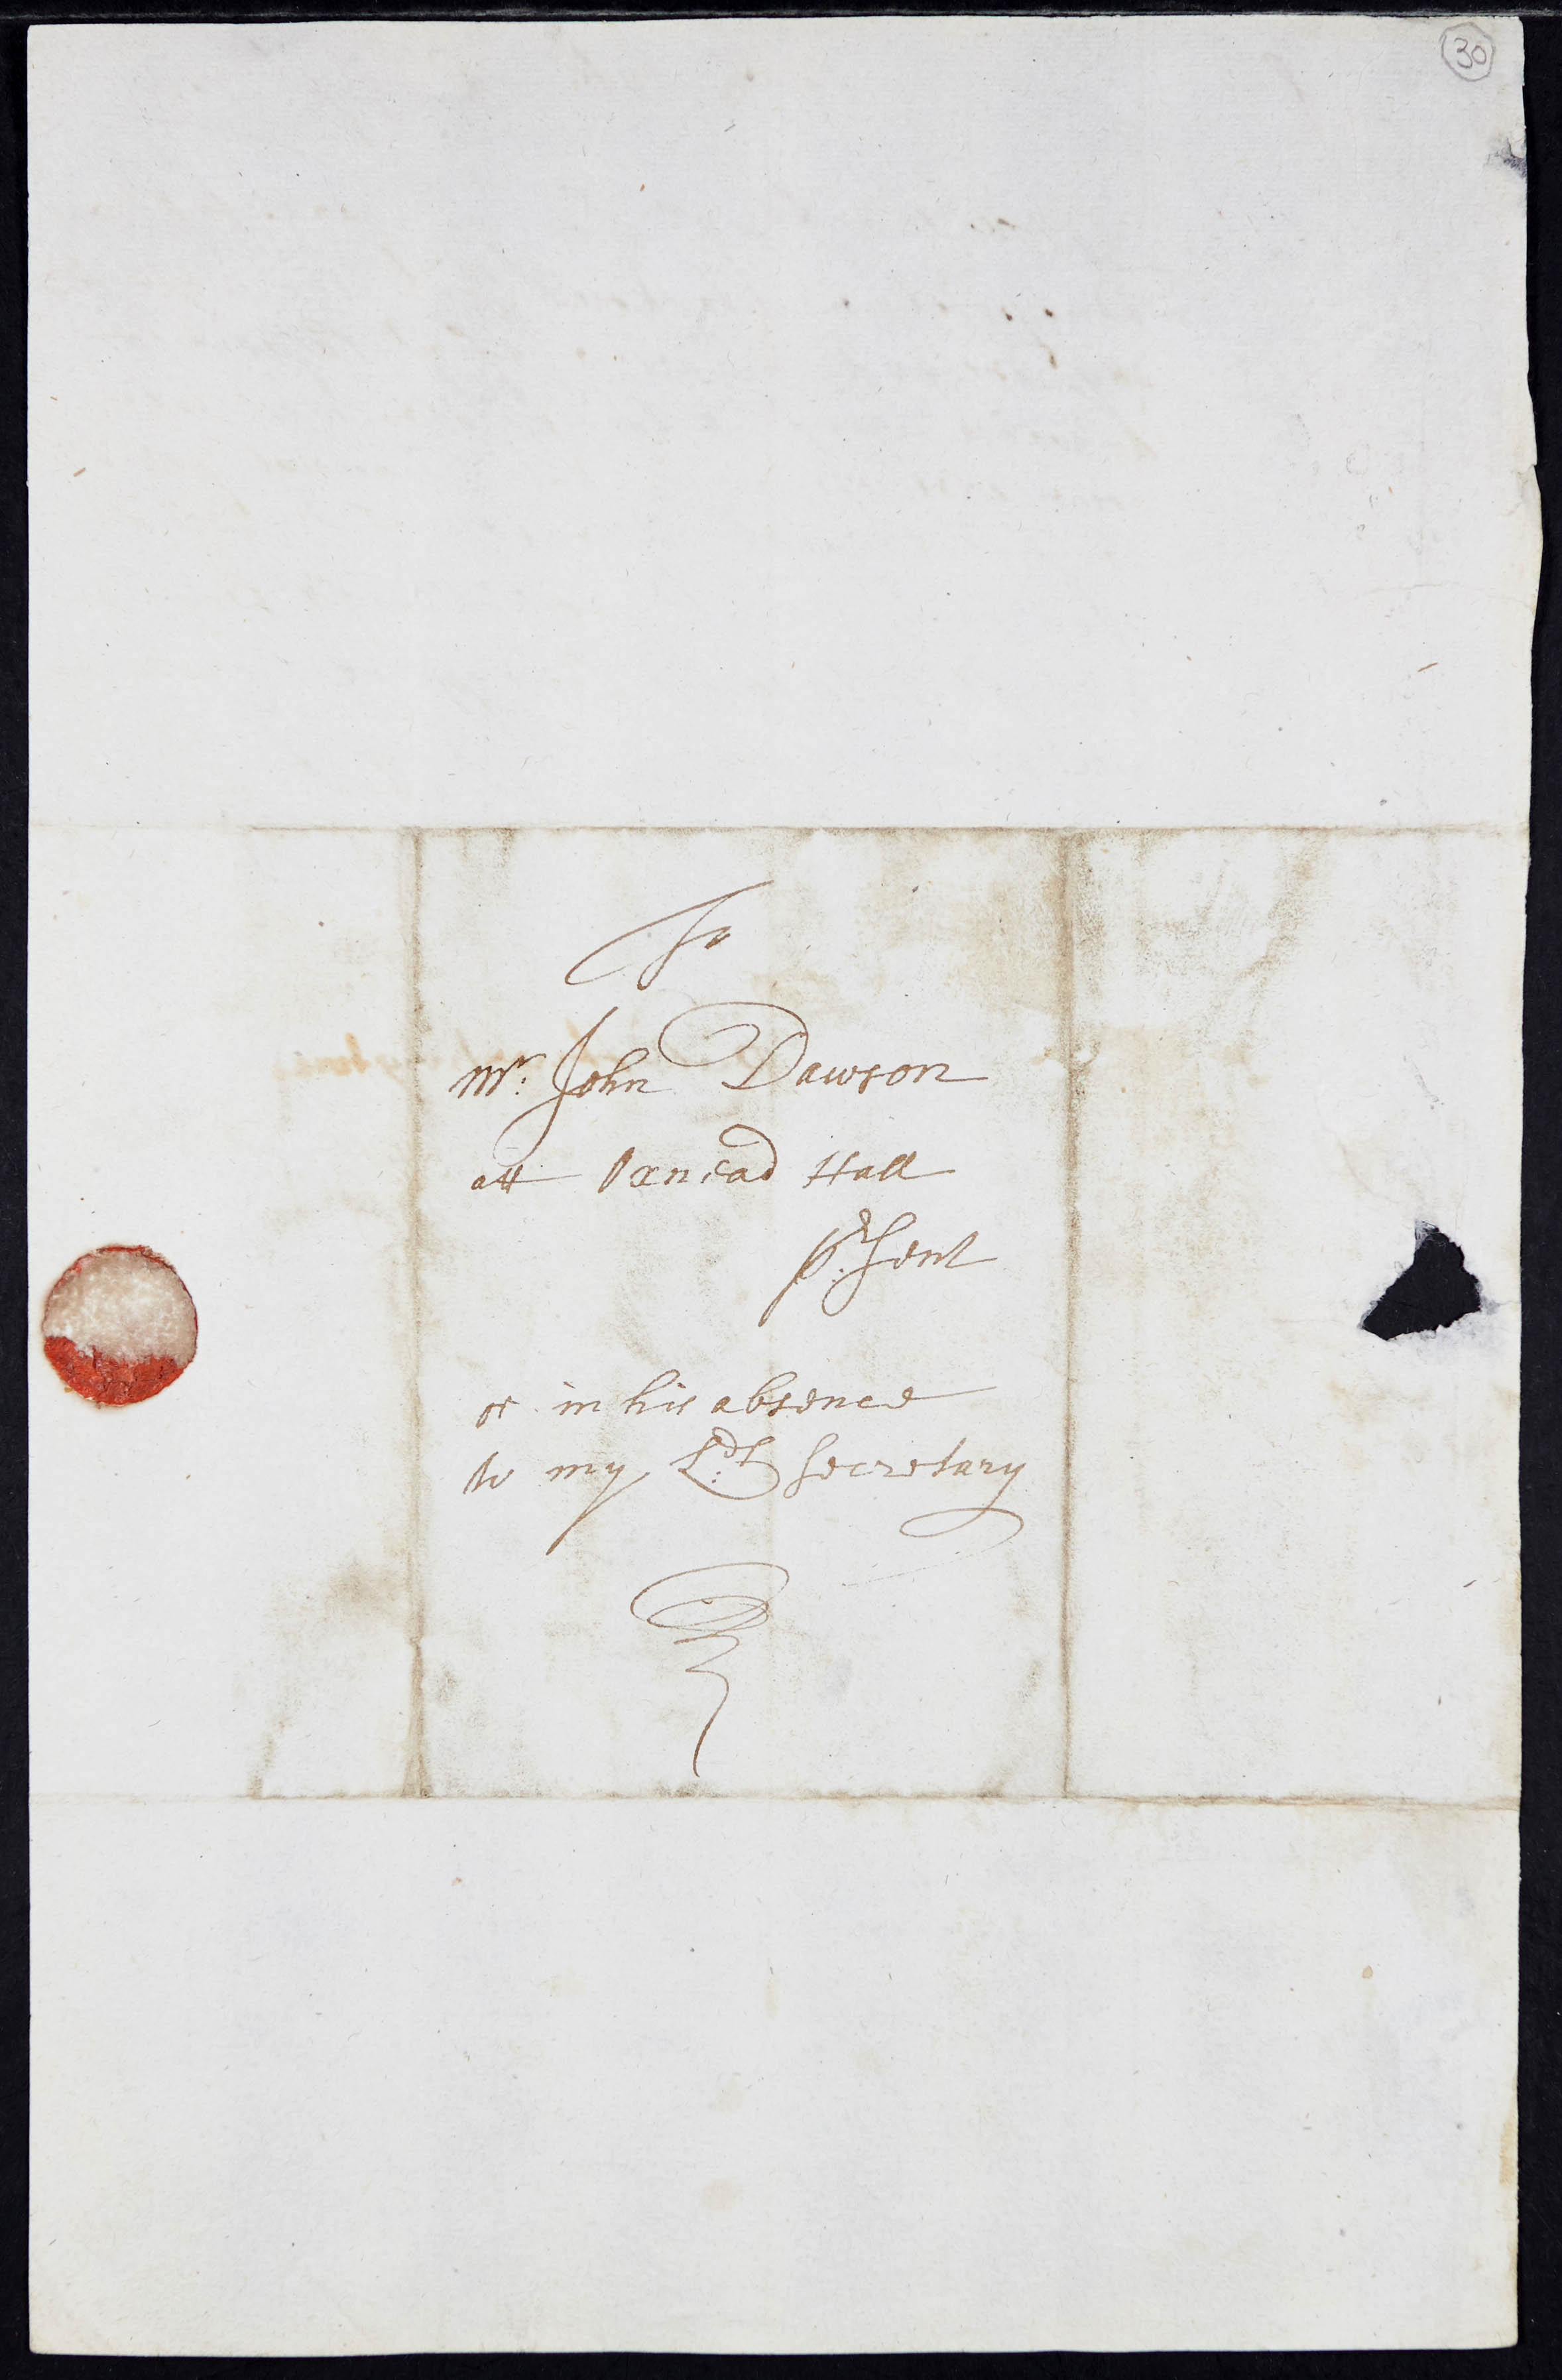 30
To
Mr: John Dawson
att Oxnead Hall
pr:sent
or in his absence
to my Lds: Secretary